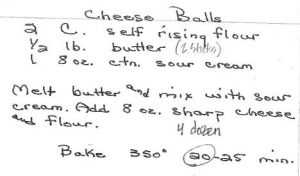 Cheese Balls
2 C. self rising flour
1/2 lb. butter (2 sticks)
1 8 oz. ctn. sour cream
Melt butter and mix with sour
cream. Add 8 oz. sharp cheese
and flour.
4 dozen
Bake 350° 20-25 min.